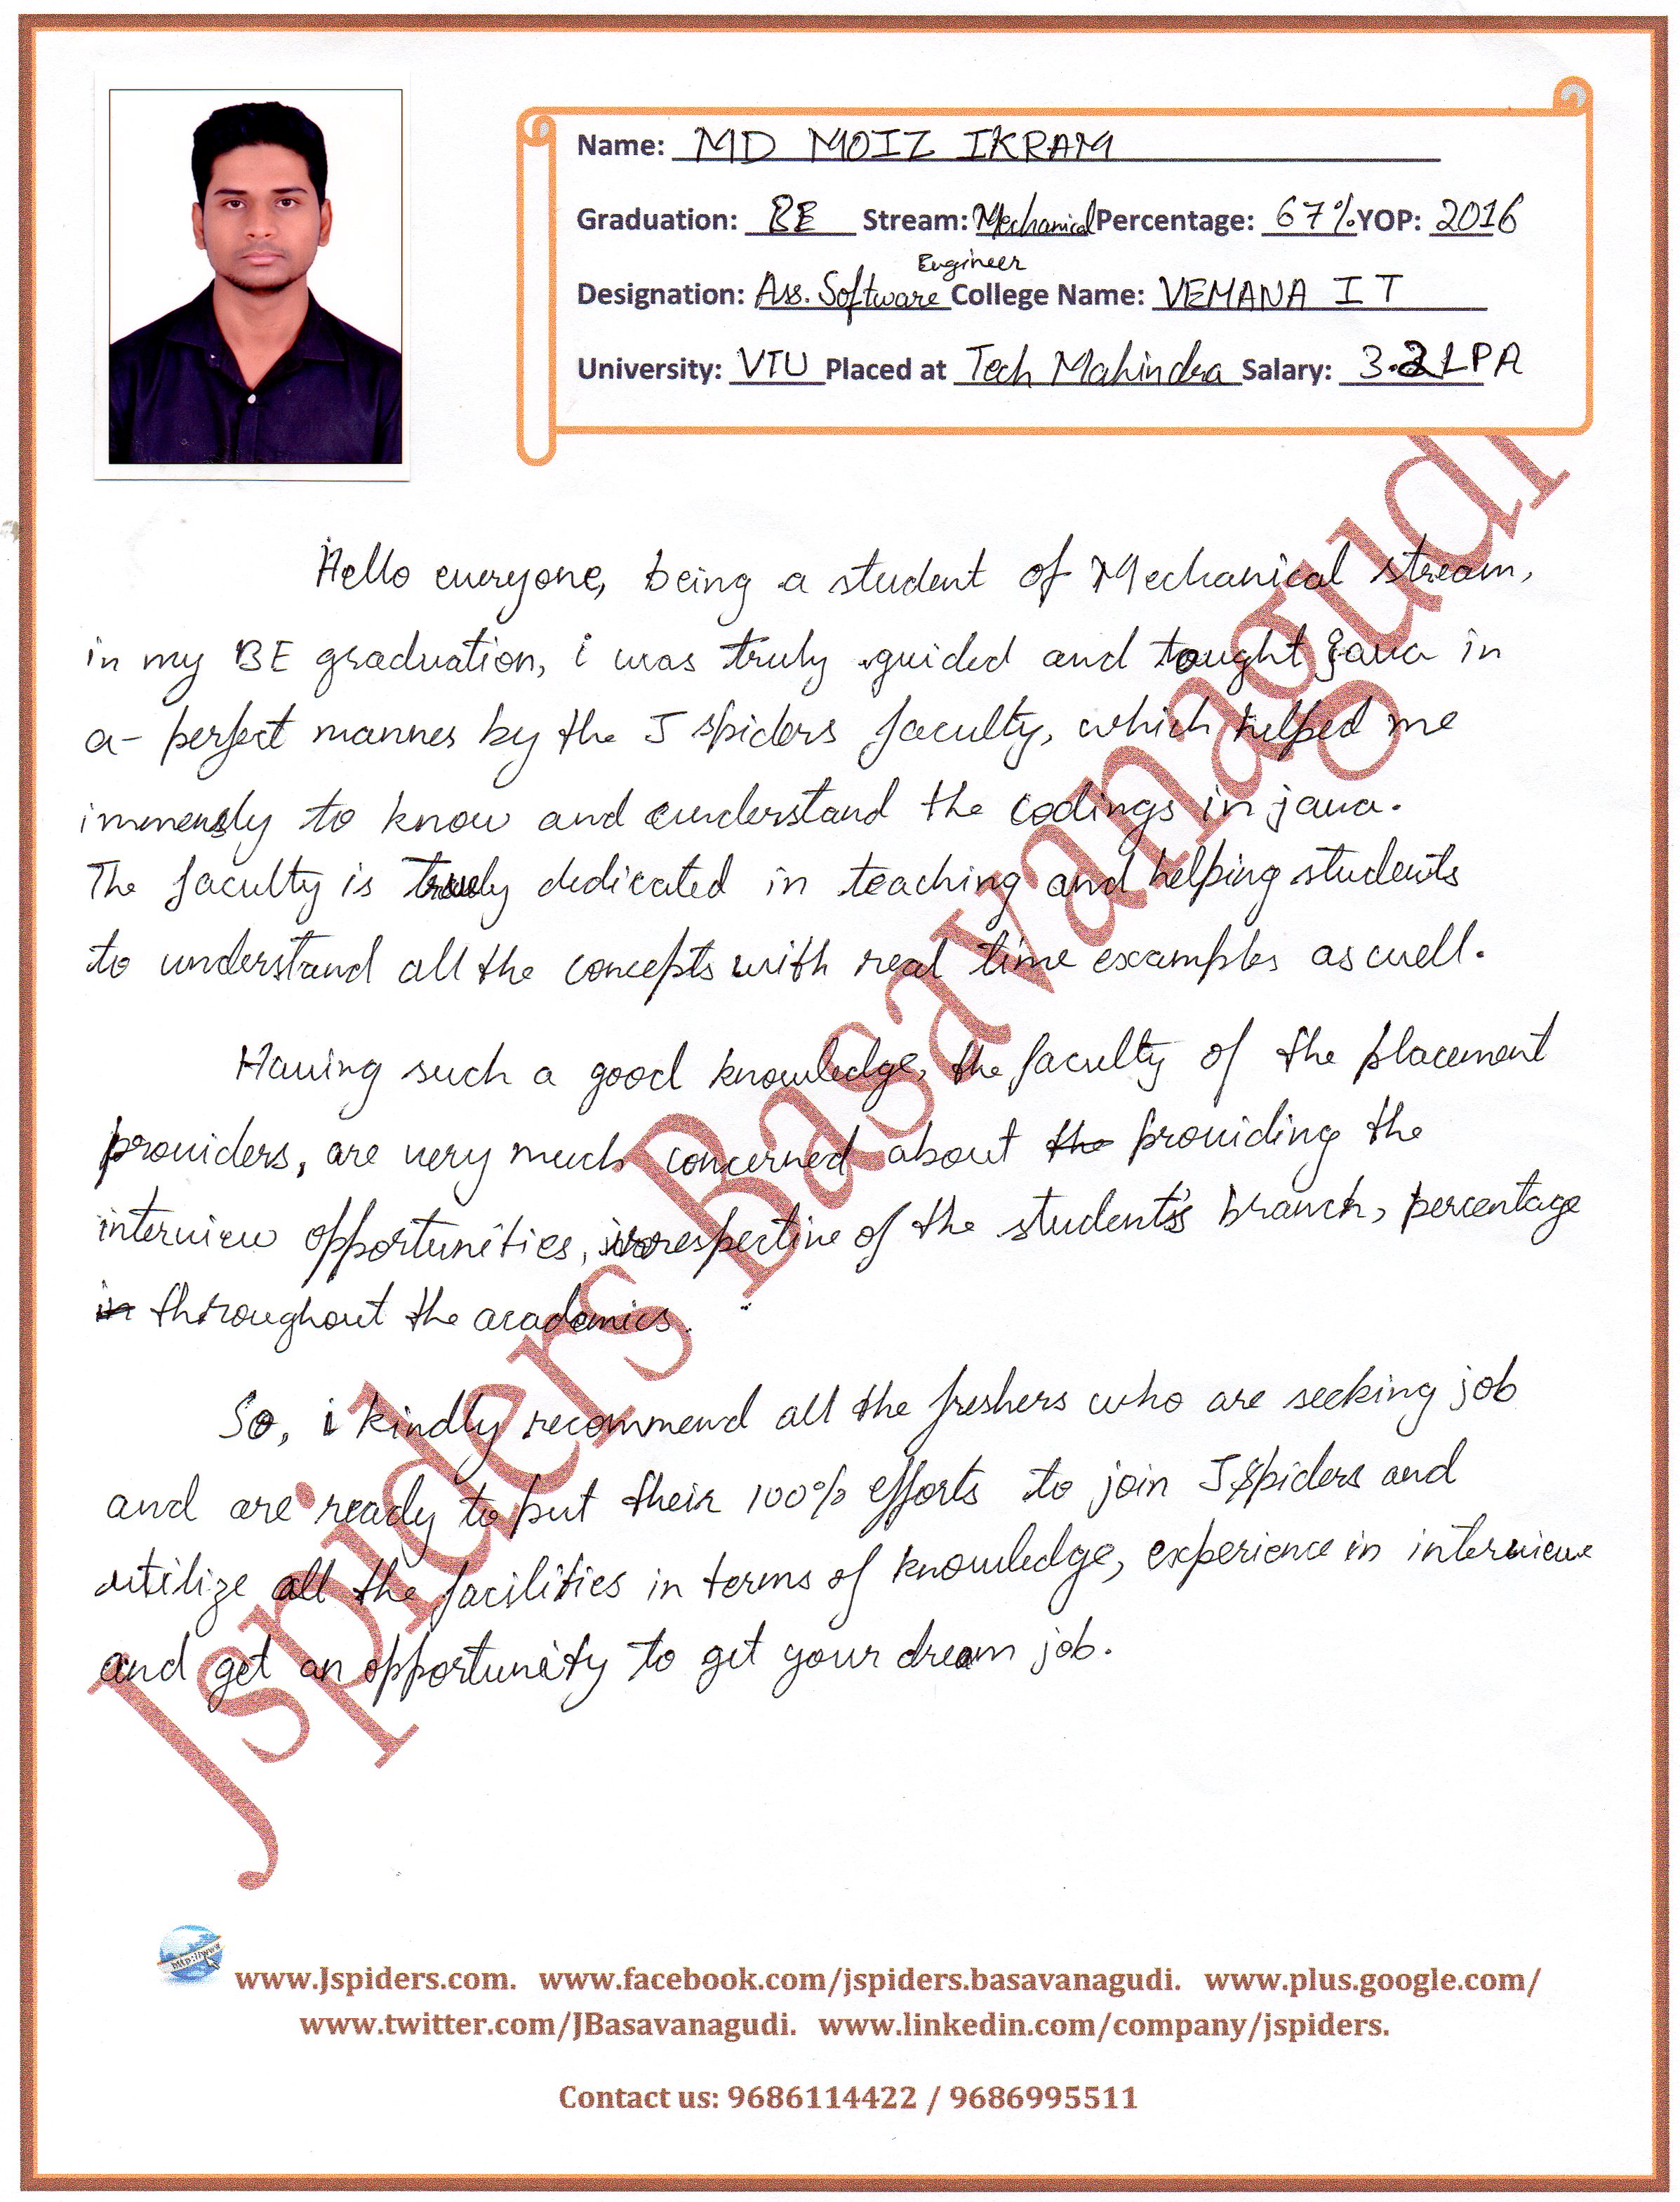 Name: MD MOIZ IKRAM
Graduation: BE Stream: Mechanical Percentage: 67% YOP: 2016
Engineer
Designation: Ass. Software College Name: VEMANA IT
University: VTU Placed at Tech Mahindra Salary: 3.2 LPA
Hello everyone, being a student of Mechanical stream,
in my BE graduation, i was truly guided and taught Java in
a perfect manner by the J spiders faculty, which helped me
immensly to know and understand the codings in java.
The faculty is truely dedicated in teaching and helping students
to understand all the concepts with real time examples as well.
Having such a good knowledge, the faculty of the placement
providers, are very much concerned about the providing the
interview opportunities, irrespective of the students's branch, percentage
in throughout the academics.
So, i kindly recommend all the freshers who are seeking job
and are ready to put their 100% efforts to join JSpiders and
utilize all the facilities in terms of knowledge, experience in interview
and get an opportunity to get your dream job.
Jspiders Basavanagudi
http://www
www.Jspiders.com. www.facebook.com/jspiders.basavanagudi. www.plus.google.com/
www.twitter.com/JBasavanagudi. www.linkedin.com/company/jspiders.
Contact us: 9686114422 / 9686995511